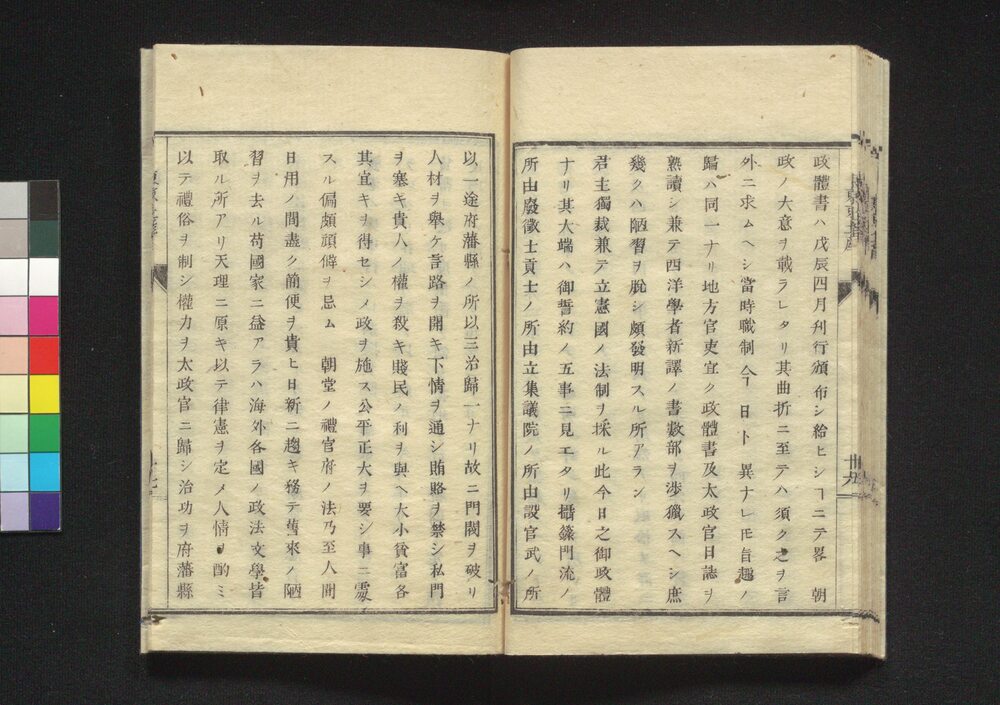 政體書ハ戊辰四月刋行頒布シ給ヒシヿニテ畧　朝
政ノ大意ヲ載ラレタリ其曲折ニ至テハ須ク之ヲ言
外ニ求ムヘシ當時職制今日ト　異ナレ𪜈旨趣ノ
歸ハ同一ナリ地方官吏宜ク政體書及太政官日誌ヲ
熟讀シ兼テ西洋學者新譯ノ書數部ヲ涉獵スヘシ庶
幾クハ陋習ヲ脫シ頗發明スル所アラン
君主獨裁兼テ立憲國ノ法制ヲ採ル此今日之御政體
ナリ其大端ハ御誓約ノ五事ニ見エタリ攝籙門流ノ
所由廢徵士貢士ノ所由立集議院ノ所由設官武ノ所
以一途府藩縣ノ所以三治歸一ナリ故ニ門閥ヲ破リ
人材ヲ舉ケ言路ヲ開キ下情ヲ通シ賄賂ヲ禁シ私門
ヲ塞キ貴人ノ權ヲ殺キ賤民ノ利ヲ與ヘ大小貧富各
其宜キヲ得セシメ政ヲ施ス公平正大ヲ要シ事ニ處
スル偏頗頑僻ヲ忌ム　朝堂ノ禮官府ノ法乃至人間
日用ノ間盡ク簡便ヲ貴ヒ日新ニ趨キ務テ舊來ノ陋
習ヲ去ル苟國家ニ益アラハ海外各國ノ政法文學皆
取ル所アリ天理ニ原キ以テ律憲ヲ定メ人情ヲ酌ミ
以テ禮俗ヲ制シ權力ヲ太政官ニ歸シ治功ヲ府藩縣